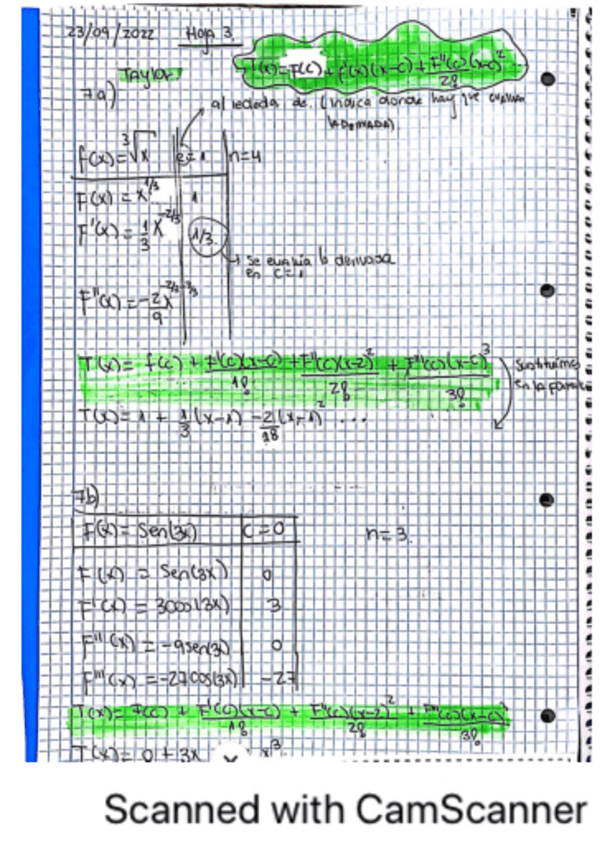 23/09/2022 Hoja 3
T(x)=F(c)+F'(x)(x-c)+F''(c)(x-c)²...
2!
Taylor!
7a)
alrededor de. (indica donde hay que evaluar
la DERIVADA)
f(x)=∛x c=1 n=4
F(x) = x^1/3 1
F'(x) = 1/3 x^-2/3 1/3.
Se evalúa la derivada
en c=1
F''(x) = -2/9 x
T(x) = f(c) + F'(c)(x-c) + F''(c)(x-2)² + F'''(c)(x-c)³
1! 2! 3!
Sustituimos
en la
T(x) = 1 + 1/3 (x-1) -2/18 (x-1)² ...
7b)
F(x) = Sen(3x) C=0 n=3.
F(x) = Sen(3x) 0
F'(x) = 3cos(3x) 3
F''(x) = -9sen(3x) 0
F'''(x) = -27cos(3x) -27
T(x) = F(c) + F'(c)(x-c) + F''(c)(x-2)² + F'''(c)(x-c)³
1! 2! 3!
T(x) = 0 + 3x x³
Scanned with CamScanner